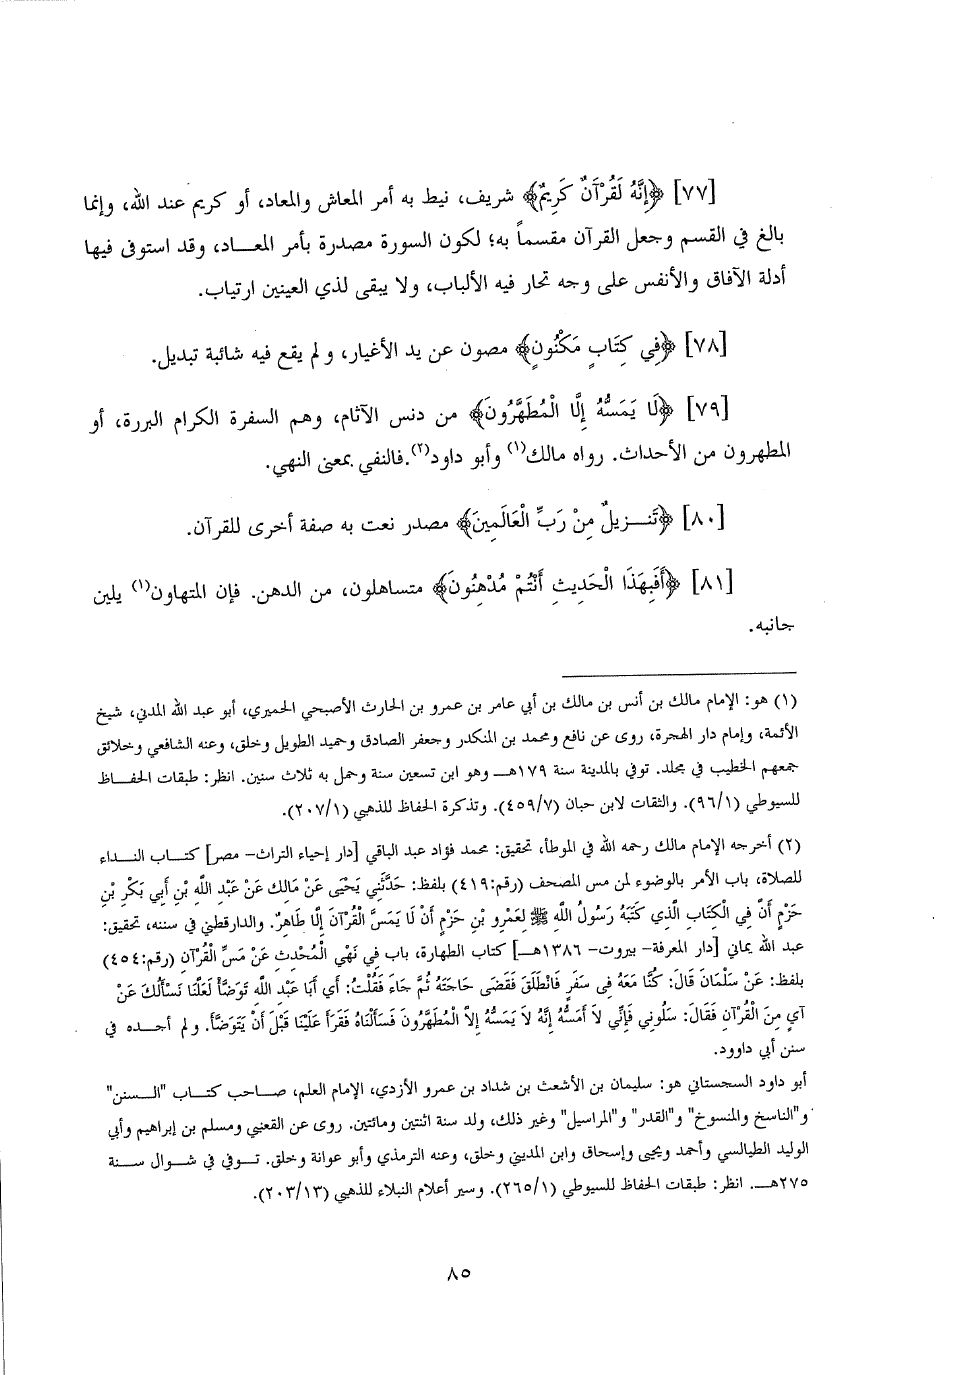 [٧٧] ﴿إِنَّهُ لَقُرْآنٌ كَرِيمٌ﴾ شريف، نيط به أمر المعاش والمعاد، أو كريم عند الله، وإنما
بالغ في القسم وجعل القرآن مقسماً به؛ لكون السورة مصدرة بأمر المعـــاد، وقد استوفى فيها
أدلة الآفاق والأنفس على وجه تحار فيه الألباب، ولا يبقى لذي العينين ارتياب.
[٧٨] ﴿فِي كِتَابٍ مَكْنُونٍ﴾ مصون عن يد الأغيار، و لم يقع فيه شائبة تبديل.
[٧٩] ﴿لَا يَمَسُّهُ إِلَّا الْمُطَهَّرُونَ﴾ من دنس الآثام، وهم السفرة الكرام البررة، أو
المطهرون من الأحداث. رواه مالك(١) وأبو داود(٢).فالنفي بمعنى النهي.
[٨٠] ﴿تَنـــزِيلٌ مِنْ رَبِّ الْعَالَمِينَ﴾ مصدر نعت به صفة أخرى للقرآن.
[٨١] ﴿أَفَبِهَذَا الْحَدِيثِ أَنْتُمْ مُدْهِنُونَ﴾ متساهلون، من الدهن. فإن المتهاون(١) يلين
جانبه.
(١) هو: الإمام مالك بن أنس بن مالك بن أبي عامر بن عمرو بن الحارث الأصبحي الحميري، أبو عبد الله المدني، شيخ
الأئمة، وإمام دار الهجرة، روى عن نافع ومحمد بن المنكدر وجعفر الصادق وحميد الطويل وخلق، وعنه الشافعي وخلائق
جمعهم الخطيب في مجلد. توفي بالمدينة سنة ١٧٩هـــ وهو ابن تسعين سنة وحمل به ثلاث سنين. انظر: طبقات الحفـــاظ
للسيوطي (٩٦/١). والثقات لابن حبان (٤٥٩/٧). وتذكرة الحفاظ للذهبي (٢٠٧/١).
(٢) أخرجه الإمام مالك رحمه الله في الموطأ، تحقيق: محمد فؤاد عبد الباقي [دار إحياء التراث- مصر] كتـــاب النـــداء
للصلاة، باب الأمر بالوضوء لمن مس المصحف (رقم:٤١٩) بلفظ: حَدَّثَنِي يَحْيَى عَنْ مَالِك عَنْ عَبْدِ اللَّهِ بْنِ أَبِي بَكْرِ بْنِ
حَزْمٍ أَنَّ فِي الْكِتَابِ الَّذِي كَتَبَهُ رَسُولُ اللَّهِ ﷺ لِعَمْرِو بْنِ حَزْمٍ أَنْ لَا يَمَسَّ الْقُرْآنَ إِلَّا طَاهِرٌ. والدارقطني في سننه، تحقيق:
عبد الله يماني [دار المعرفة- بيروت- ١٣٨٦هـــ] كتاب الطهارة، باب فِي نَهْيِ الْمُحْدِثِ عَنْ مَسِّ الْقُرْآنِ (رقم:٤٥٤)
بلفظ: عَنْ سَلْمَانَ قَالَ: كُنَّا مَعَهُ فِى سَفَرٍ فَانْطَلَقَ فَقَضَى حَاجَتَهُ ثُمَّ جَاءَ فَقُلْتُ: أَي أَبَا عَبْدِ اللَّه تَوَضَّأْ لَعَلَّنَا نَسْأَلُكَ عَنْ
آيٍ مِنَ الْقُرْآنِ فَقَالَ: سَلُونِي فَإِنِّي لاَ أَمَسُّهُ إِنَّهُ لاَ يَمَسُّهُ إِلاَّ الْمُطَهَّرُونَ فَسَأَلْنَاهُ فَقَرَأَ عَلَيْنَا قَبْلَ أَنْ يَتَوَضَّأَ. و لم أجـــده في
سنن أبي داوود.
أبو داود السجستاني هو: سليمان بن الأشعث بن شداد بن عمرو الأزدي، الإمام العلم، صـــاحب كتـــاب "الـــسنن"
و"الناسخ والمنسوخ" و"القدر" و"المراسيل" وغير ذلك، ولد سنة اثنتين ومائتين. روى عن القعنبي ومسلم بن إبراهيم وأبي
الوليد الطيالسي وأحمد ويحيى وإسحاق وابن المديني وخلق، وعنه الترمذي وأبو عوانة وخلق. تـــوفي في شـــوال ســـنة
٢٧٥هـــ. انظر: طبقات الحفاظ للسيوطي (٢٦٥/١). وسير أعلام النبلاء للذهبي (٢٠٣/١٣).
٨٥